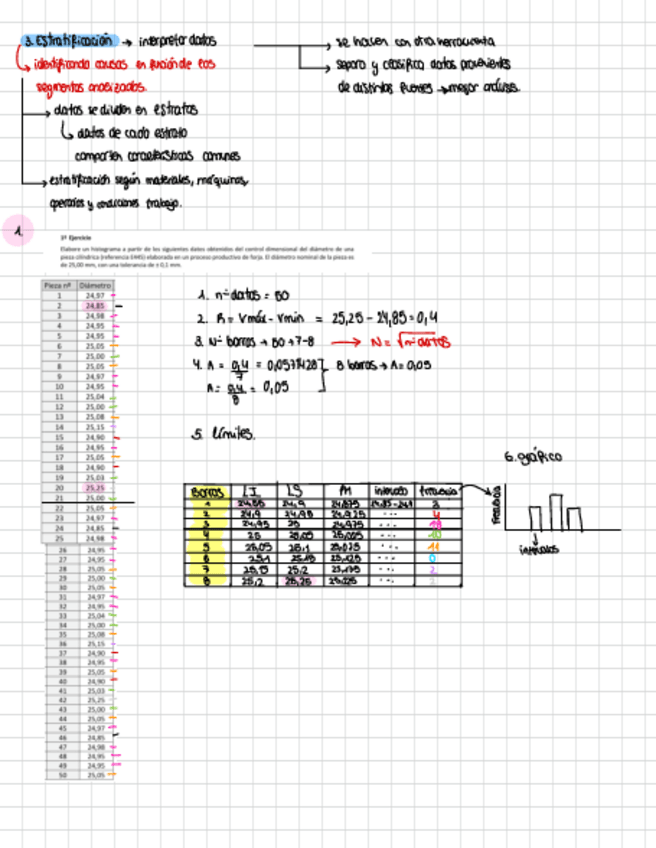 3. Estratificación → interpretar datos
→ se hacen con otra herramienta
→ identificando causas en función de los
segmentos analizados.
→ separa y clasifica datos provenientes
de distintas fuentes → mejor análisis.
→ datos se dividen en estratos
↳ datos de cada estrato
comparten características comunes
→ estratificación según materiales, máquinas,
operarios y condiciones trabajo.
1.
1º Ejercicio
Elabore un histograma a partir de los siguientes datos obtenidos del control dimensional del diámetro de una
pieza cilíndrica (referencia EM45) elaborada en un proceso productivo de forja. El diámetro nominal de la pieza es
de 25,00 mm, con una tolerancia de ± 0,1 mm.
Pieza nº Diámetro
1 24,97
2 24,85
3 24,98
4 24,95
5 24,95
6 25,05
7 25,00
8 25,05
9 24,97
10 24,95
11 25,04
12 25,00
13 25,08
14 25,15
15 24,90
16 24,95
17 25,05
18 24,90
19 25,03
20 25,25
21 25,00
22 25,05
23 24,97
24 24,85
25 24,98
26 24,95
27 24,95
28 25,05
29 25,00
30 25,05
31 24,97
32 24,95
33 25,04
34 25,00
35 25,08
36 25,15
37 24,90
38 24,95
39 25,05
40 24,90
41 25,03
42 25,25
43 25,00
44 25,05
45 24,97
46 24,85
47 24,98
48 24,95
49 24,95
50 25,05
1. nº datos = 50
2. R = Vmáx - Vmin = 25,25 - 24,85 = 0,4
3. Nº barras → 50 → 7-8 → N = √nº datos
4. A = 0,4/7 = 0,05714287
A = 0,4/8 = 0,05
8 barras → A = 0,05
5. Límites.
6. gráfico
Barras LI LS PM intervalo frecuencia
1 24,85 24,9 24,875 24,85-24,9 3
2 24,9 24,95 24,925 ... 4
3 24,95 25 24,975 ...
4 25 25,05 25,025 ... 10
5 25,05 25,1 25,075 ... 11
6 25,1 25,15 25,125 ... 0
7 25,15 25,2 25,175 ... 2
8 25,2 25,25 25,225 ...
frecuencia
intervalos